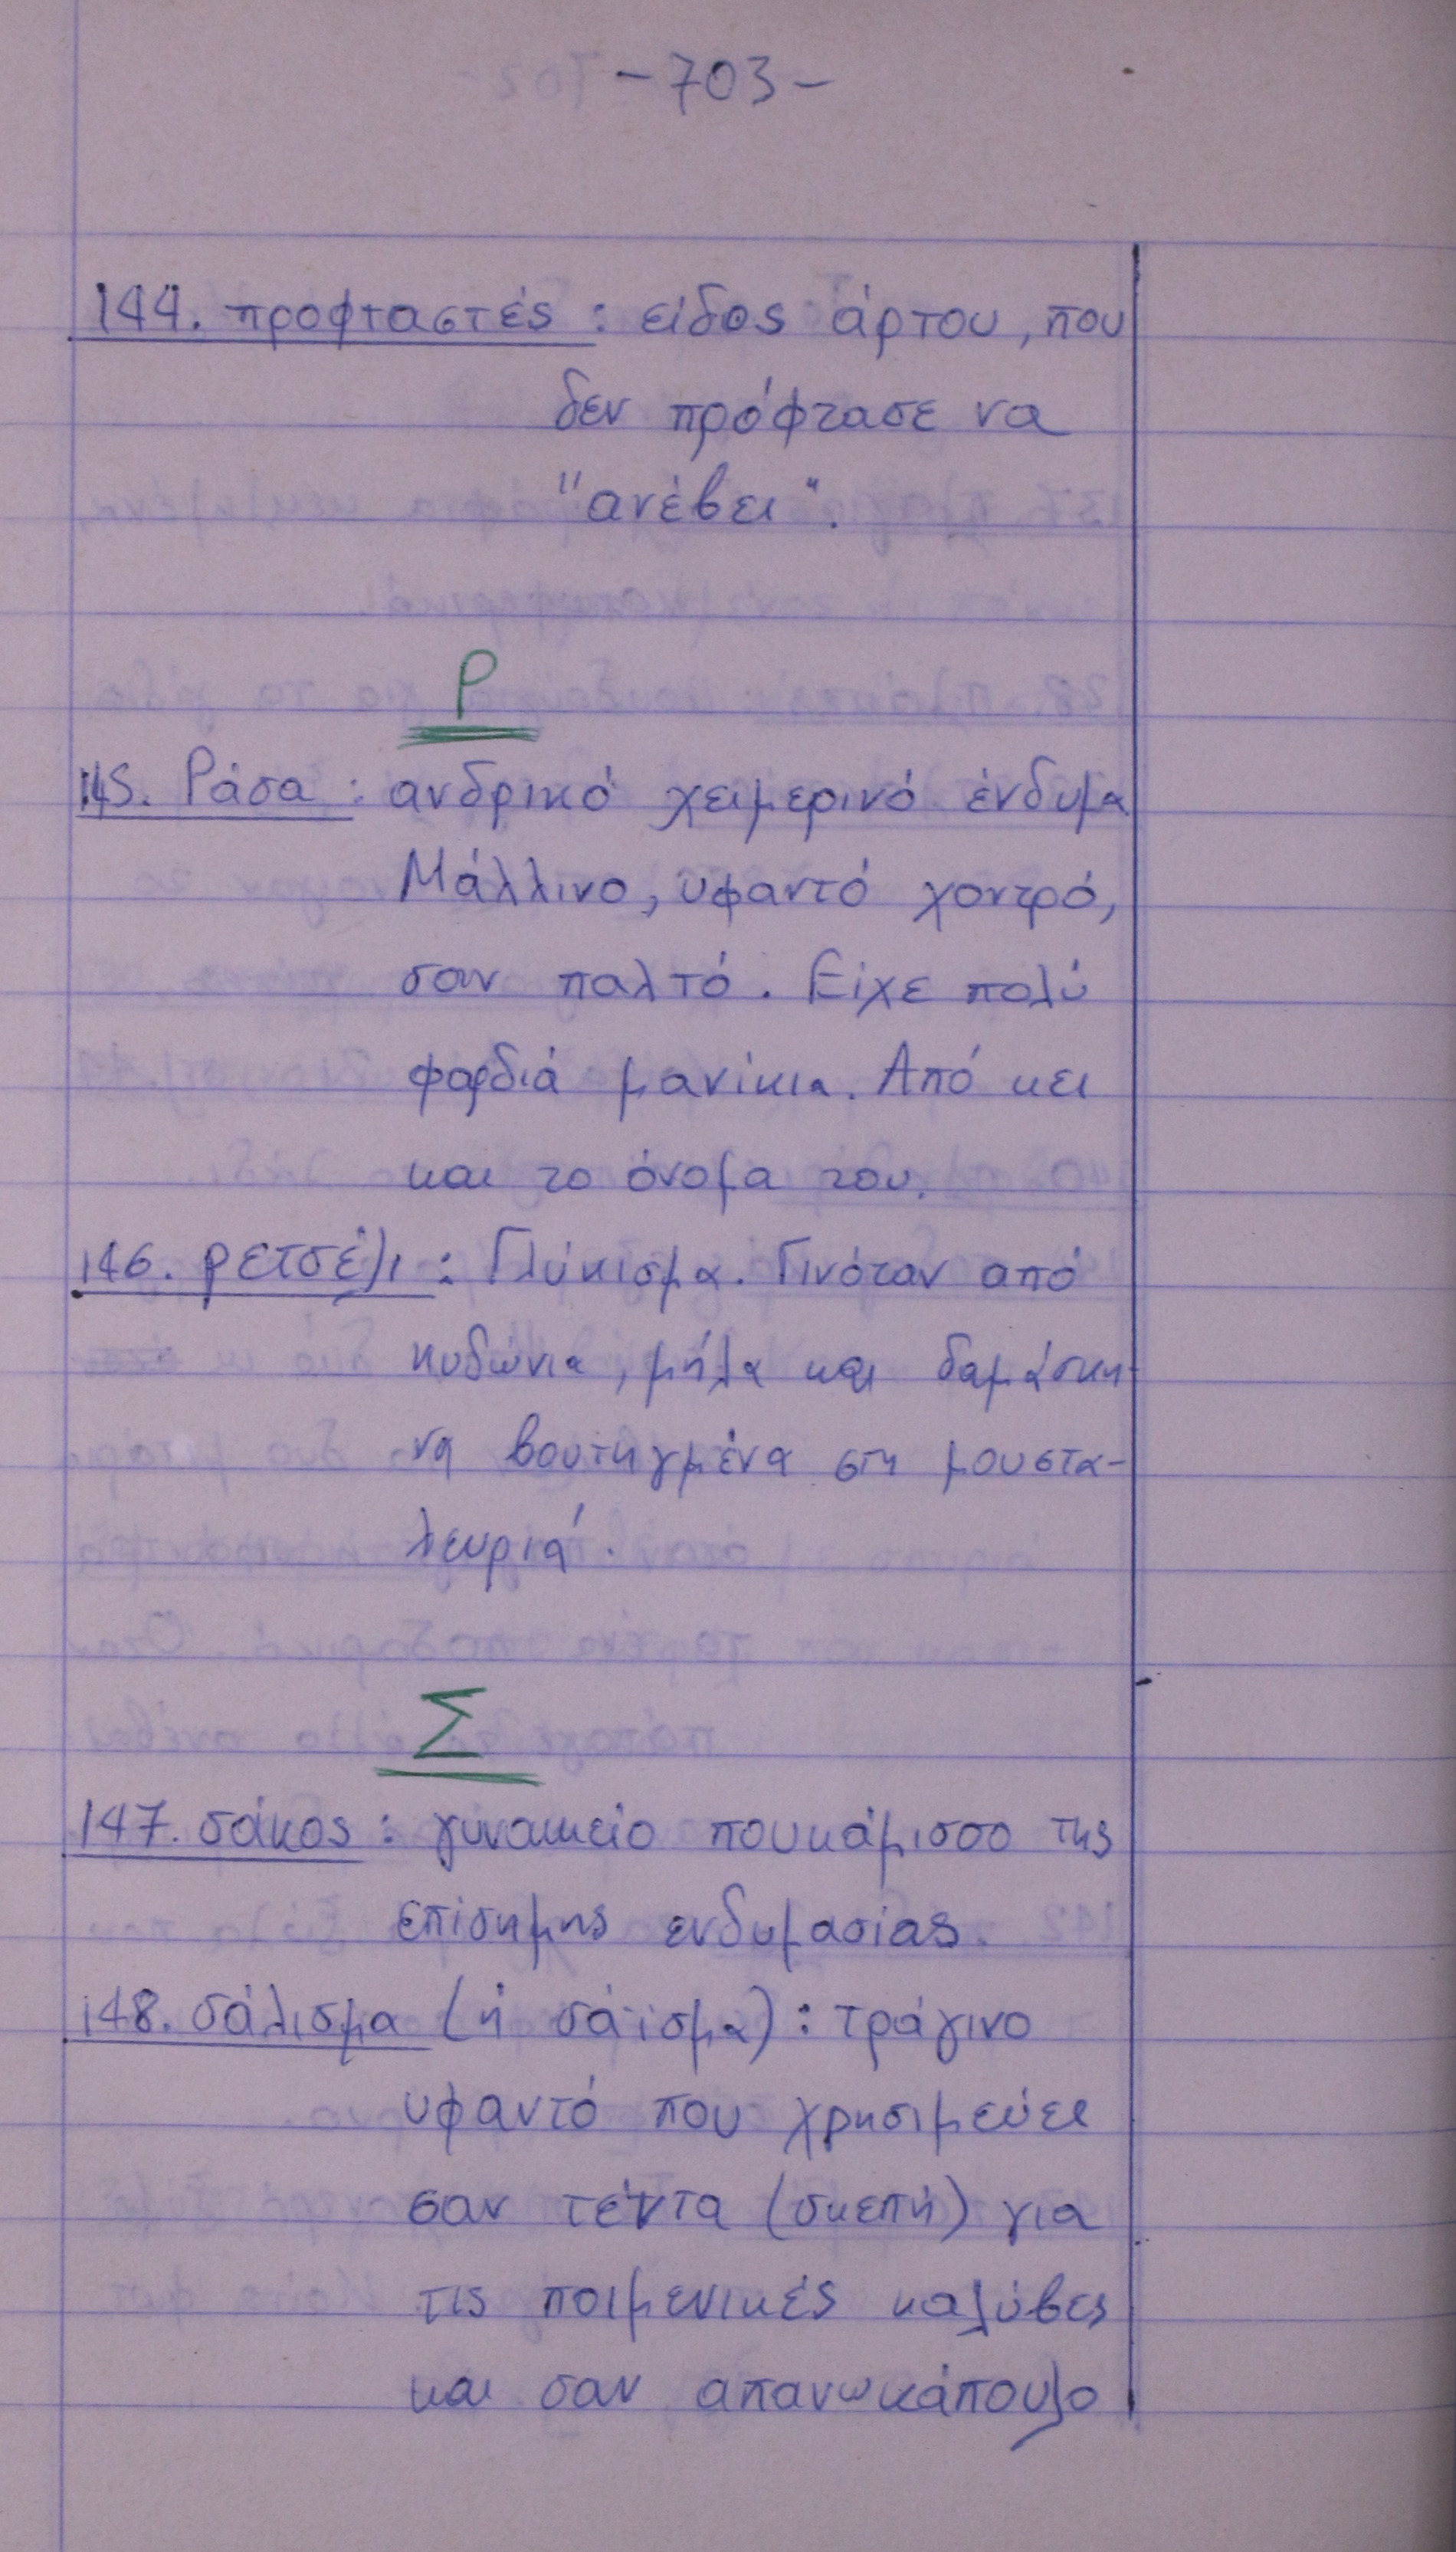 -703-
144. προφταστές : είδος άρτου, που
δεν πρόφτασε να
"ανέβει".
Ρ
145. Ράσα : ανδρικό χειμερινό ένδυμα
Μάλλινο, υφαντό χοντρό,
σαν παλτό. Είχε πολύ
φαρδιά μανίκια. Από κει
και το όνομα του.
146. ρετσέλι : Γλύκισμα. Γινόταν από
κυδώνια, μήλα και δαμάσκη-
να βουτηγμένα στη μουστα-
λευριά.
Σ
147. σάκος : γυναικείο πουκάμισσο της
επίσημης ενδυμασίας.
148. σάλισμα (ή σάϊσμα) : τράγινο
υφαντό που χρησιμεύει
σαν τέντα (σκεπή) για
τις ποιμενικές καλύβες
και σαν απανωκάπουλο